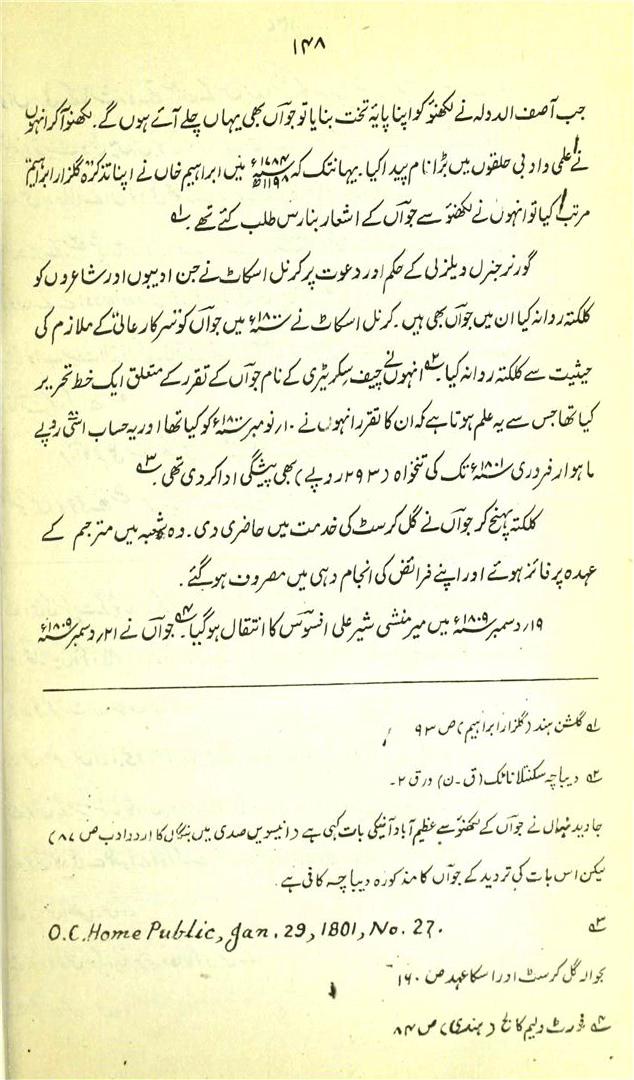 ۱۴۸
جب آصف الدولہ نے لکھنؤ کو اپنا پایۂ تخت بنایا تو جواںؔ بھی یہاں چلے آئے ہوں گے۔ لکھنؤ آکر انہوں
نے علمی و ادبی حلقوں میں بڑا نام پیدا کیا۔ یہانتک کہ ۱۷۸۴ء ۱۱۹۸ھ میں ابراہیم خاں نے اپنا تذکرہ گلزار ابراہیم
مرتب کیا تو انہوں نے لکھنؤ سے جواںؔ کے اشعار بنارس طلب کئے تھے۔ ؎۱
گورنر جنرل ویلزلی کے حکم اور دعوت پر کرنل اسکاٹ نے جن ادیبوں اور شاعروں کو
کلکتہ روانہ کیا ان میں جواںؔ بھی ہیں۔ کرنل اسکاٹ نے ۱۸۰۰ء میں جواںؔ کو "سرکار عالی" کے ملازم کی
حیثیت سے کلکتہ روانہ کیا۔ ؎۲ انہوں نے چیف سکریٹری کے نام جواںؔ کے تقرر کے متعلق ایک خط تحریر
کیا تھا جس سے یہ علم ہوتا ہے کہ ان کا تقرر انہوں نے ۱۰؍ نومبر ۱۸۰۰ء کو کیا تھا اور بہ حساب اسّی روپے
ماہوار فروری ۱۸۰۱ء تک کی تنخواہ (۲۹۳ روپے) بھی پیشگی ادا کر دی تھی۔ ؎۳
کلکتہ پہنچ کر جواںؔ نے گل کرسٹ کی خدمت میں حاضری دی۔ وہ شعبہ میں مترجم کے
عہدہ پر فائز ہوئے اور اپنے فرائض کی انجام دہی میں مصروف ہو گئے۔
۱۹؍ دسمبر ۱۸۰۹ء میں میر منشی شیر علی افسوسؔ کا انتقال ہو گیا۔ ؎۴ جواںؔ نے ۲۱؍ دسمبر ۱۸۰۹ء
؎۱ گلشن ہند (گلزار ابراہیم) ص ۹۳
؎۲ دیباچہ سکنتلا ناٹک (ق۔ن) ورق ۲۔
جاوید نہال نے جواںؔ کے لکھنؤ سے عظیم آباد آنیکی بات کہی ہے (انیسویں صدی میں بنگال کا اردو ادب ص ۸۷)
لیکن اس بات کی تردید کے جواںؔ کا مذکورہ دیباچہ کافی ہے۔
؎۳ O.C. Home Public, Jan. 29, 1801, No. 27.
بحوالہ گل کرسٹ اور اسکا عہد ص ۱۶۰
؎۴ فورٹ ولیم کالج (ہندی) ص ۸۴